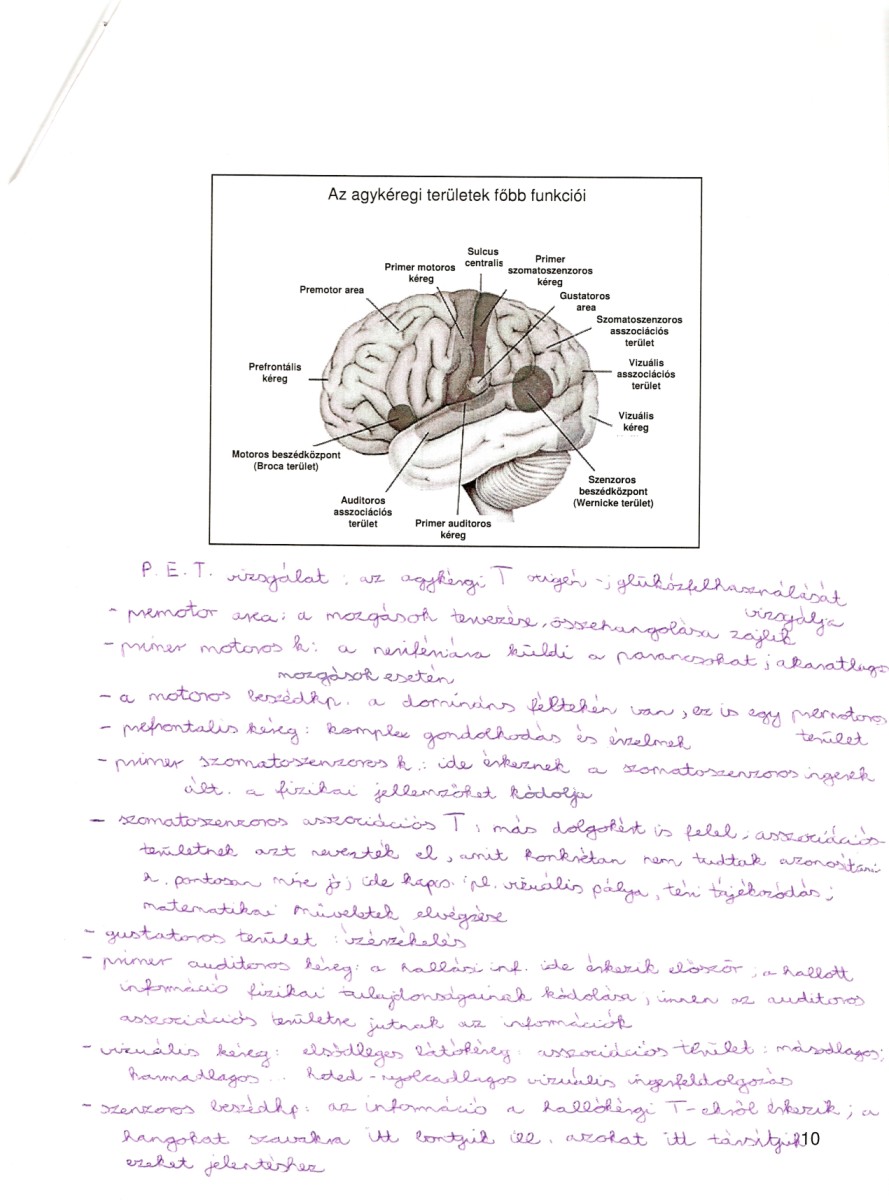 Az agykéregi területek főbb funkciói
Sulcus
centralis
Primer motoros
kéreg
Primer
szomatoszenzoros
kéreg
Premotor area
Gustatoros
area
Szomatoszenzoros
asszociációs
terület
Prefrontális
kéreg
Vizuális
asszociációs
terület
Vizuális
kéreg
Motoros beszédközpont
(Broca terület)
Szenzoros
beszédközpont
(Wernicke terület)
Auditoros
asszociációs
terület
Primer auditoros
kéreg
P.E.T. vizsgálat: az agykérgi T oxigén-; glükózfelhasználását
vizsgálja
- premotor area: a mozgások tervezése, összehangolása zajlik
- primer motoros k: a perifériára küldi a parancsokat; akaratlagos
mozgások esetén
- a motoros beszédkp. a domináns féltekén van, ez is egy premotoros
terület
- prefrontalis kéreg: komplex gondolkodás és érzelmek
- primer szomatoszenzoros k.: ide érkeznek a szomatoszenzoros ingerek
ált. a fizikai jellemzőket kódolja
- szomatoszenzoros asszociációs T: más dolgokért is felel; asszociációs
területnek azt nevezték el, amit konkrétan nem tudtak azonosítani
h. pontosan mire jó; ide kapcs. pl. vizuális pálya, téri tájékozódás;
matematikai műveletek elvégzése
- gustatoros terület: ízérzékelés
- primer auditoros kéreg: a hallási inf. ide érkezik először; a hallott
információ fizikai tulajdonságainak kódolása; innen az auditoros
asszociációs területre jutnak az információk
- vizuális kéreg: elsődleges látókéreg; asszociációs terület: másodlagos;
harmadlagos... heted-nyolcadlagos vizuális ingerfeldolgozás
- szenzoros beszédkp: az információ a hallókérgi T-ekről érkezik; a
hangokat szavakra itt bontjuk ill. azokat itt társítjuk
10
ezeket jelentéshez